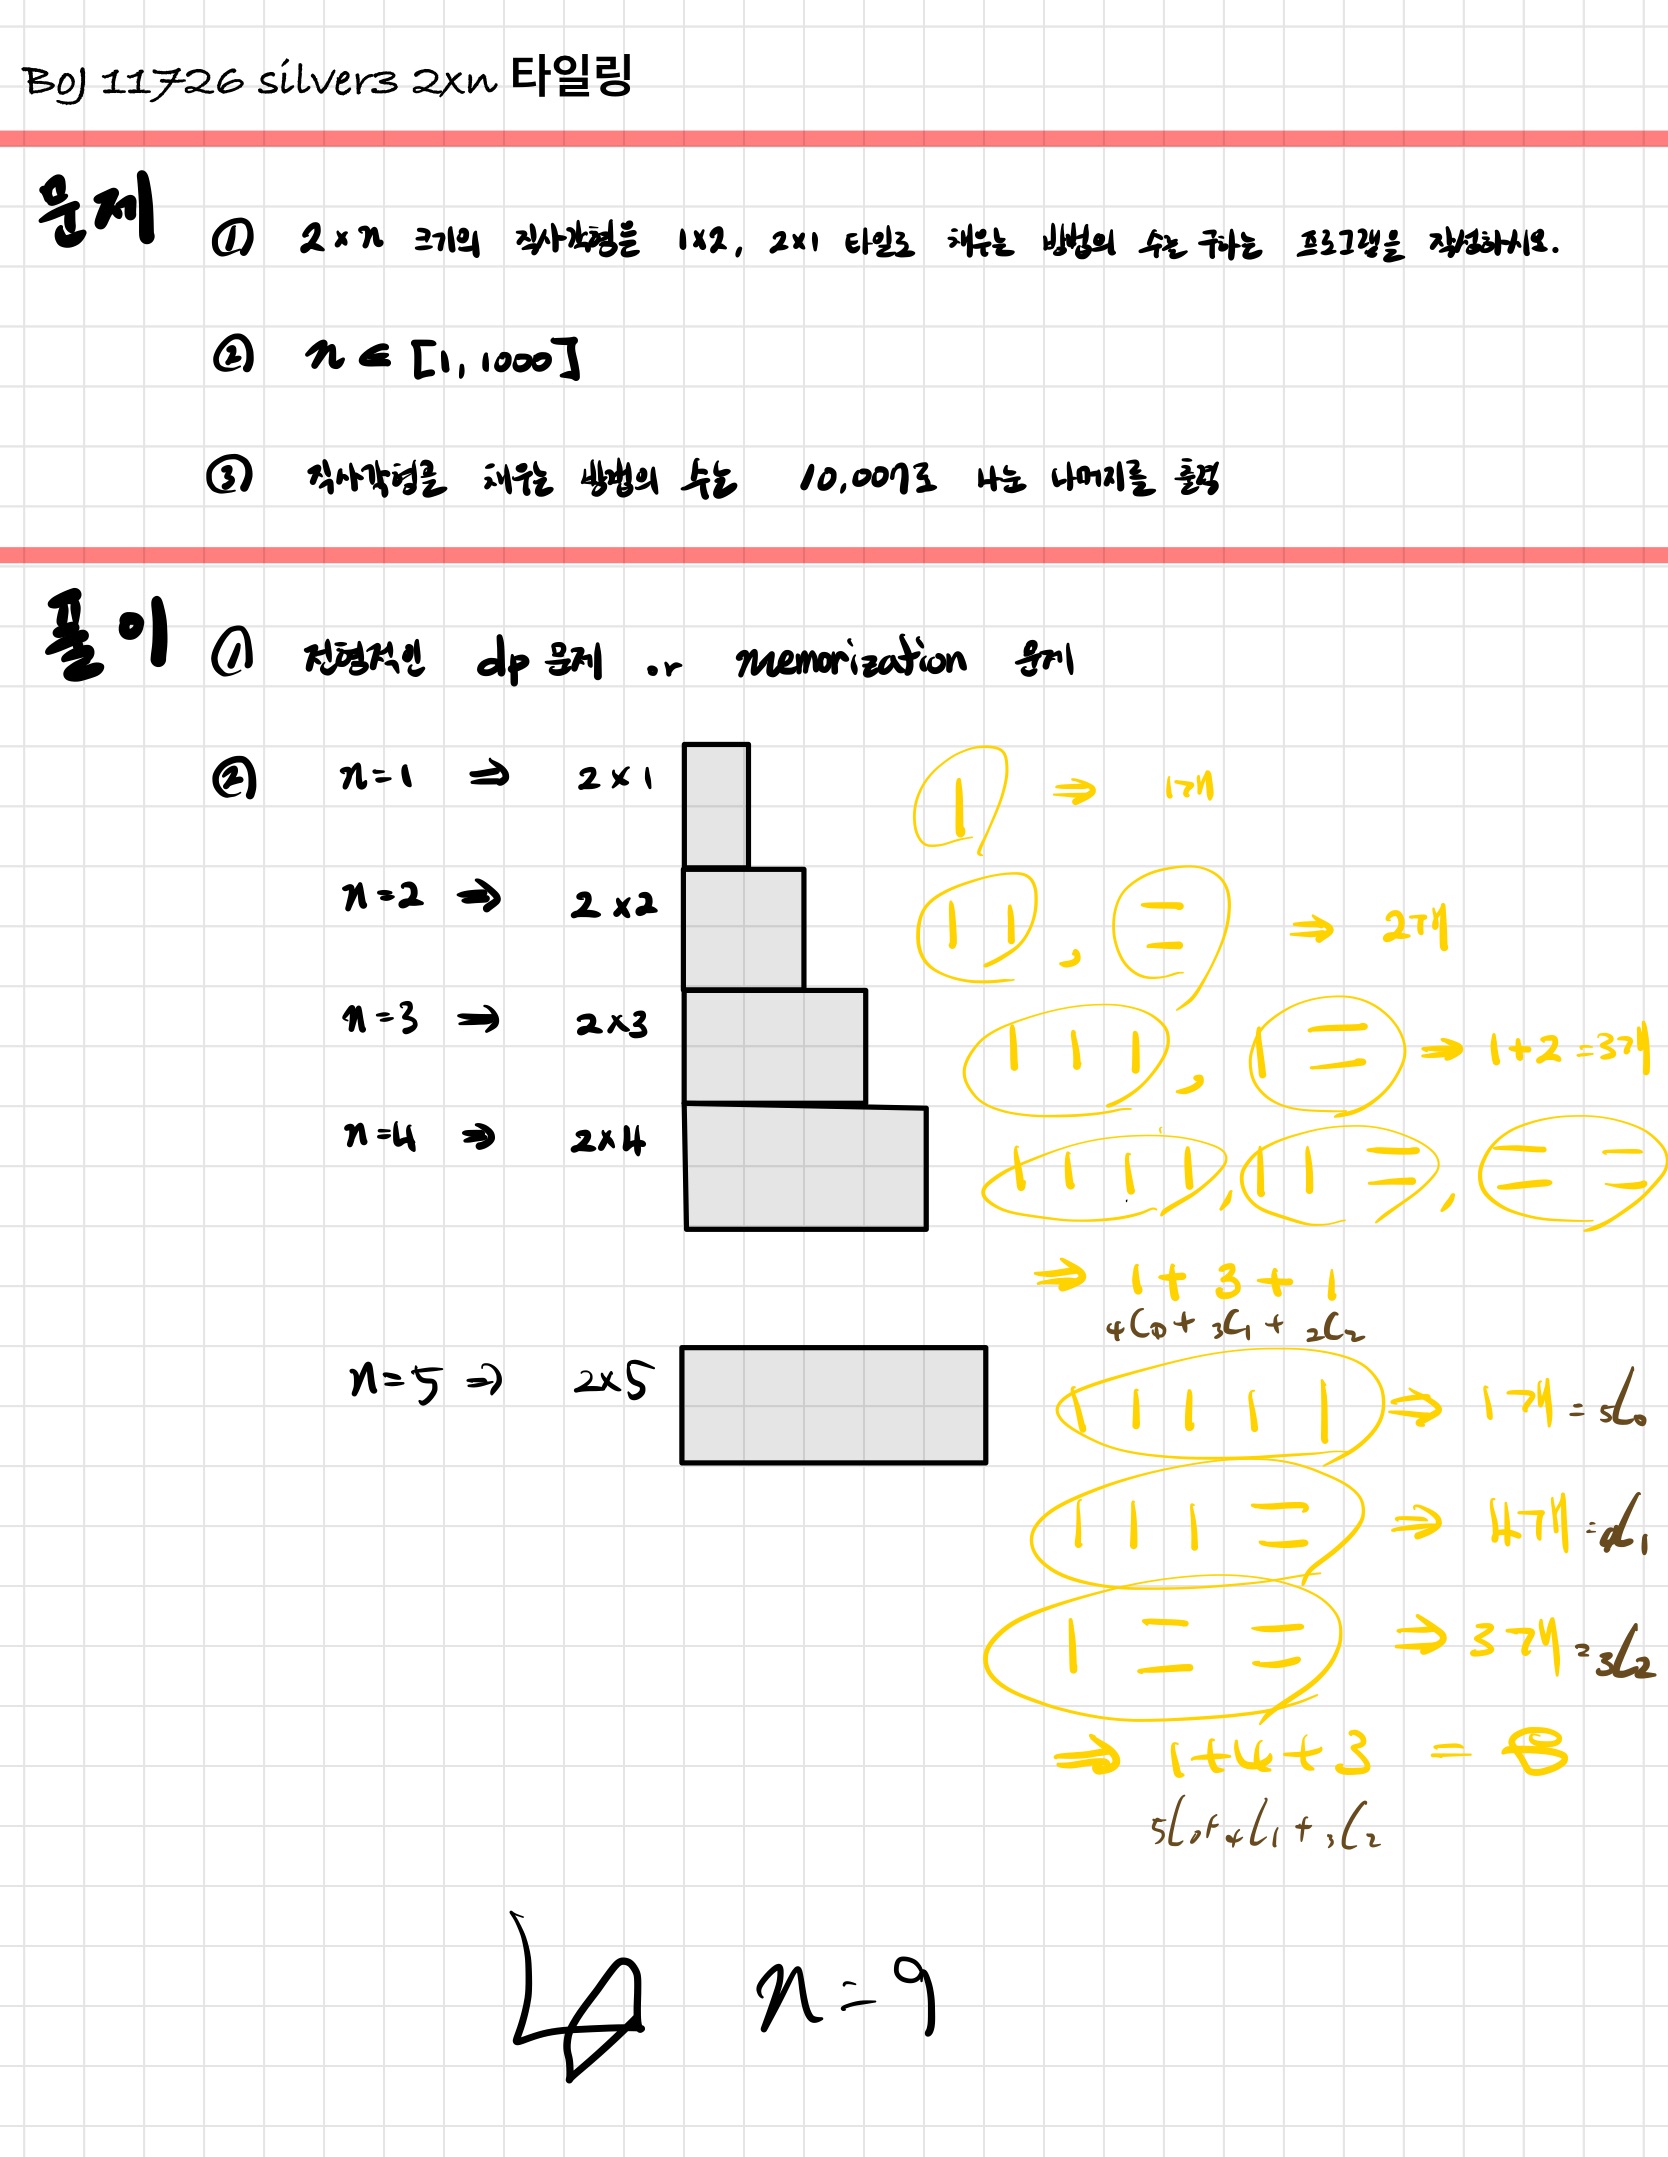 BOJ 11726 silver3 2xn 타일링
문제
① 2×n 크기의 직사각형을 1×2, 2×1 타일로 채우는 방법의 수를 구하는 프로그램을 작성하시오.
② n ∈ [1, 1000]
③ 직사각형를 채우는 방법의 수는 10,007로 나눈 나머지를 출력
풀이
① 전형적인 dp 문제 or memorization 문제
② n=1 ⇒ 2×1 | ⇒ 1개
n=2 ⇒ 2×2 | | , = ⇒ 2개
n=3 ⇒ 2×3 | | | , | = ⇒ 1+2=3개
n=4 ⇒ 2×4 | | | | , | | = , = =
⇒ 1+3+1
₄C₀ + ₃C₁ + ₂C₂
n=5 ⇒ 2×5 | | | | | ⇒ 1개 = ₅C₀
| | | = ⇒ 4개 = ₄C₁
| = = ⇒ 3개 = ₃C₂
⇒ 1+4+3 = 8
₅C₀+₄C₁+₃C₂
n=9